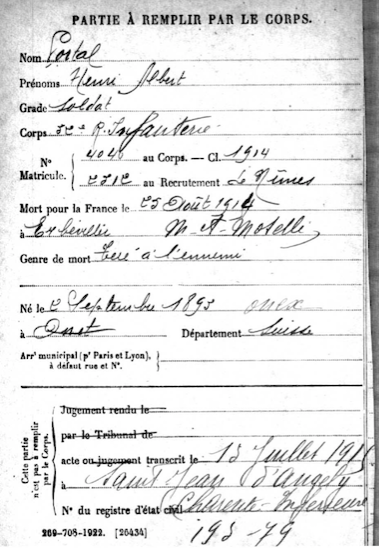 PARTIE À REMPLIR PAR LE CORPS.
Nom Portal
Prénoms Henri Albert
Grade Soldat
Corps R. Infanterie
N° Matricule. 4046 au Corps. — Cl. 1914
au Recrutement de Nîmes
Mort pour la France le 25 Août 1914
à Erbéviller M-et-Moselle
Genre de mort Tué à l'ennemi
Né le 2 Septembre 1893 onex
à Onet Département Suisse
Arrt municipal (pr Paris et Lyon),
à défaut rue et N°.
Cette partie n'est pas à remplir par le Corps.
Jugement rendu le
par le Tribunal de
acte ou jugement transcrit le 13 Juillet
à Saint Jean d'Angely
Charente-Inferieure
N° du registre d'état civil
193-79
269-708-1922. [26434]